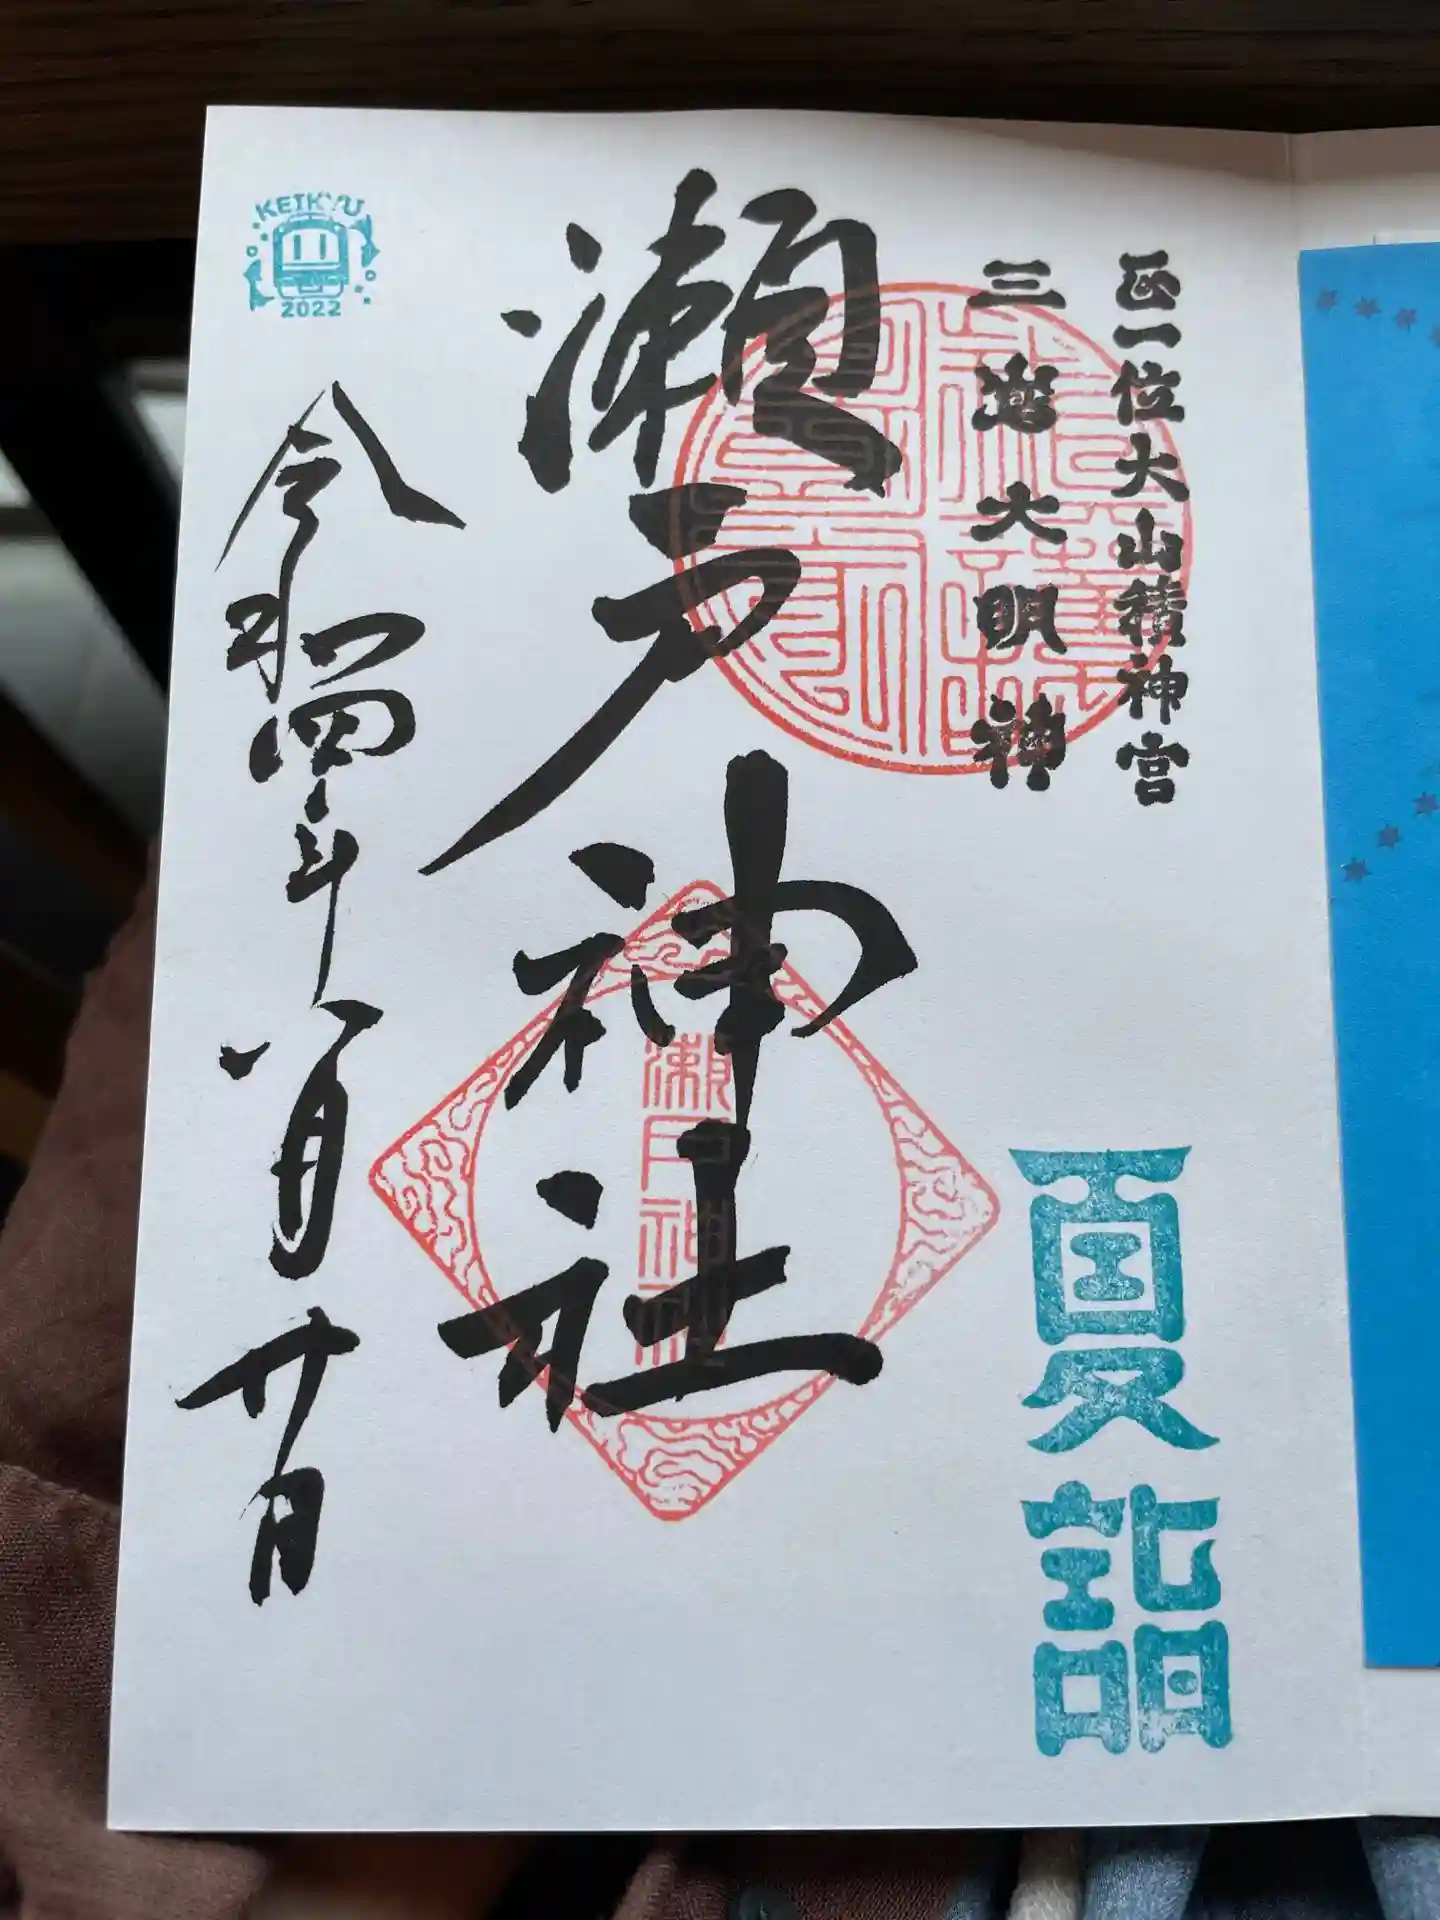 正一位大山積神宮
三嶋大明神
夏詣
瀬戸神社
瀬戸神社
令和四年八月廿日
KEIKYU
2022